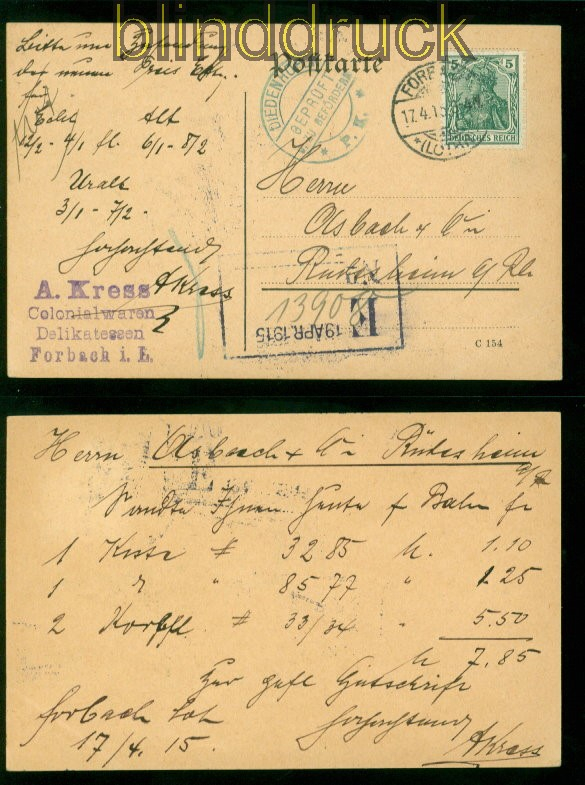 blinddruck
Bitte um Zusendung
der neuen Preis
für
Echt Alt
1/2 - 4/1 fl. 6/1 - 8/2
Uralt
3/1 - 7/2 -
hochachtend
AKress
A. Kress
Colonialwaren
Delikatessen
Forbach i. L.
Postkarte
DIEDENHOFEN
GEPRÜFT
ZU BEFÖRDERN
P. K.
FORBACH
17.4.15
(LOTHR.)
5 5
DEUTSCHES REICH
Herrn
Asbach & Co
Rüdesheim a/Rh
1390
E
19 APR. 1915
C 154
Herrn Asbach & Co Rüdesheim
a/R
Sandte Ihnen heute p Bahn fr
1 Kiste # 32 85 M. 1.10
1 " " 85 77 " 1.25
2 Korbfl. # 33/34 " 5.50
M 7.85
Zur gefl Gutschrift
Forbach Lot hochachtend
17/4. 15. AKress